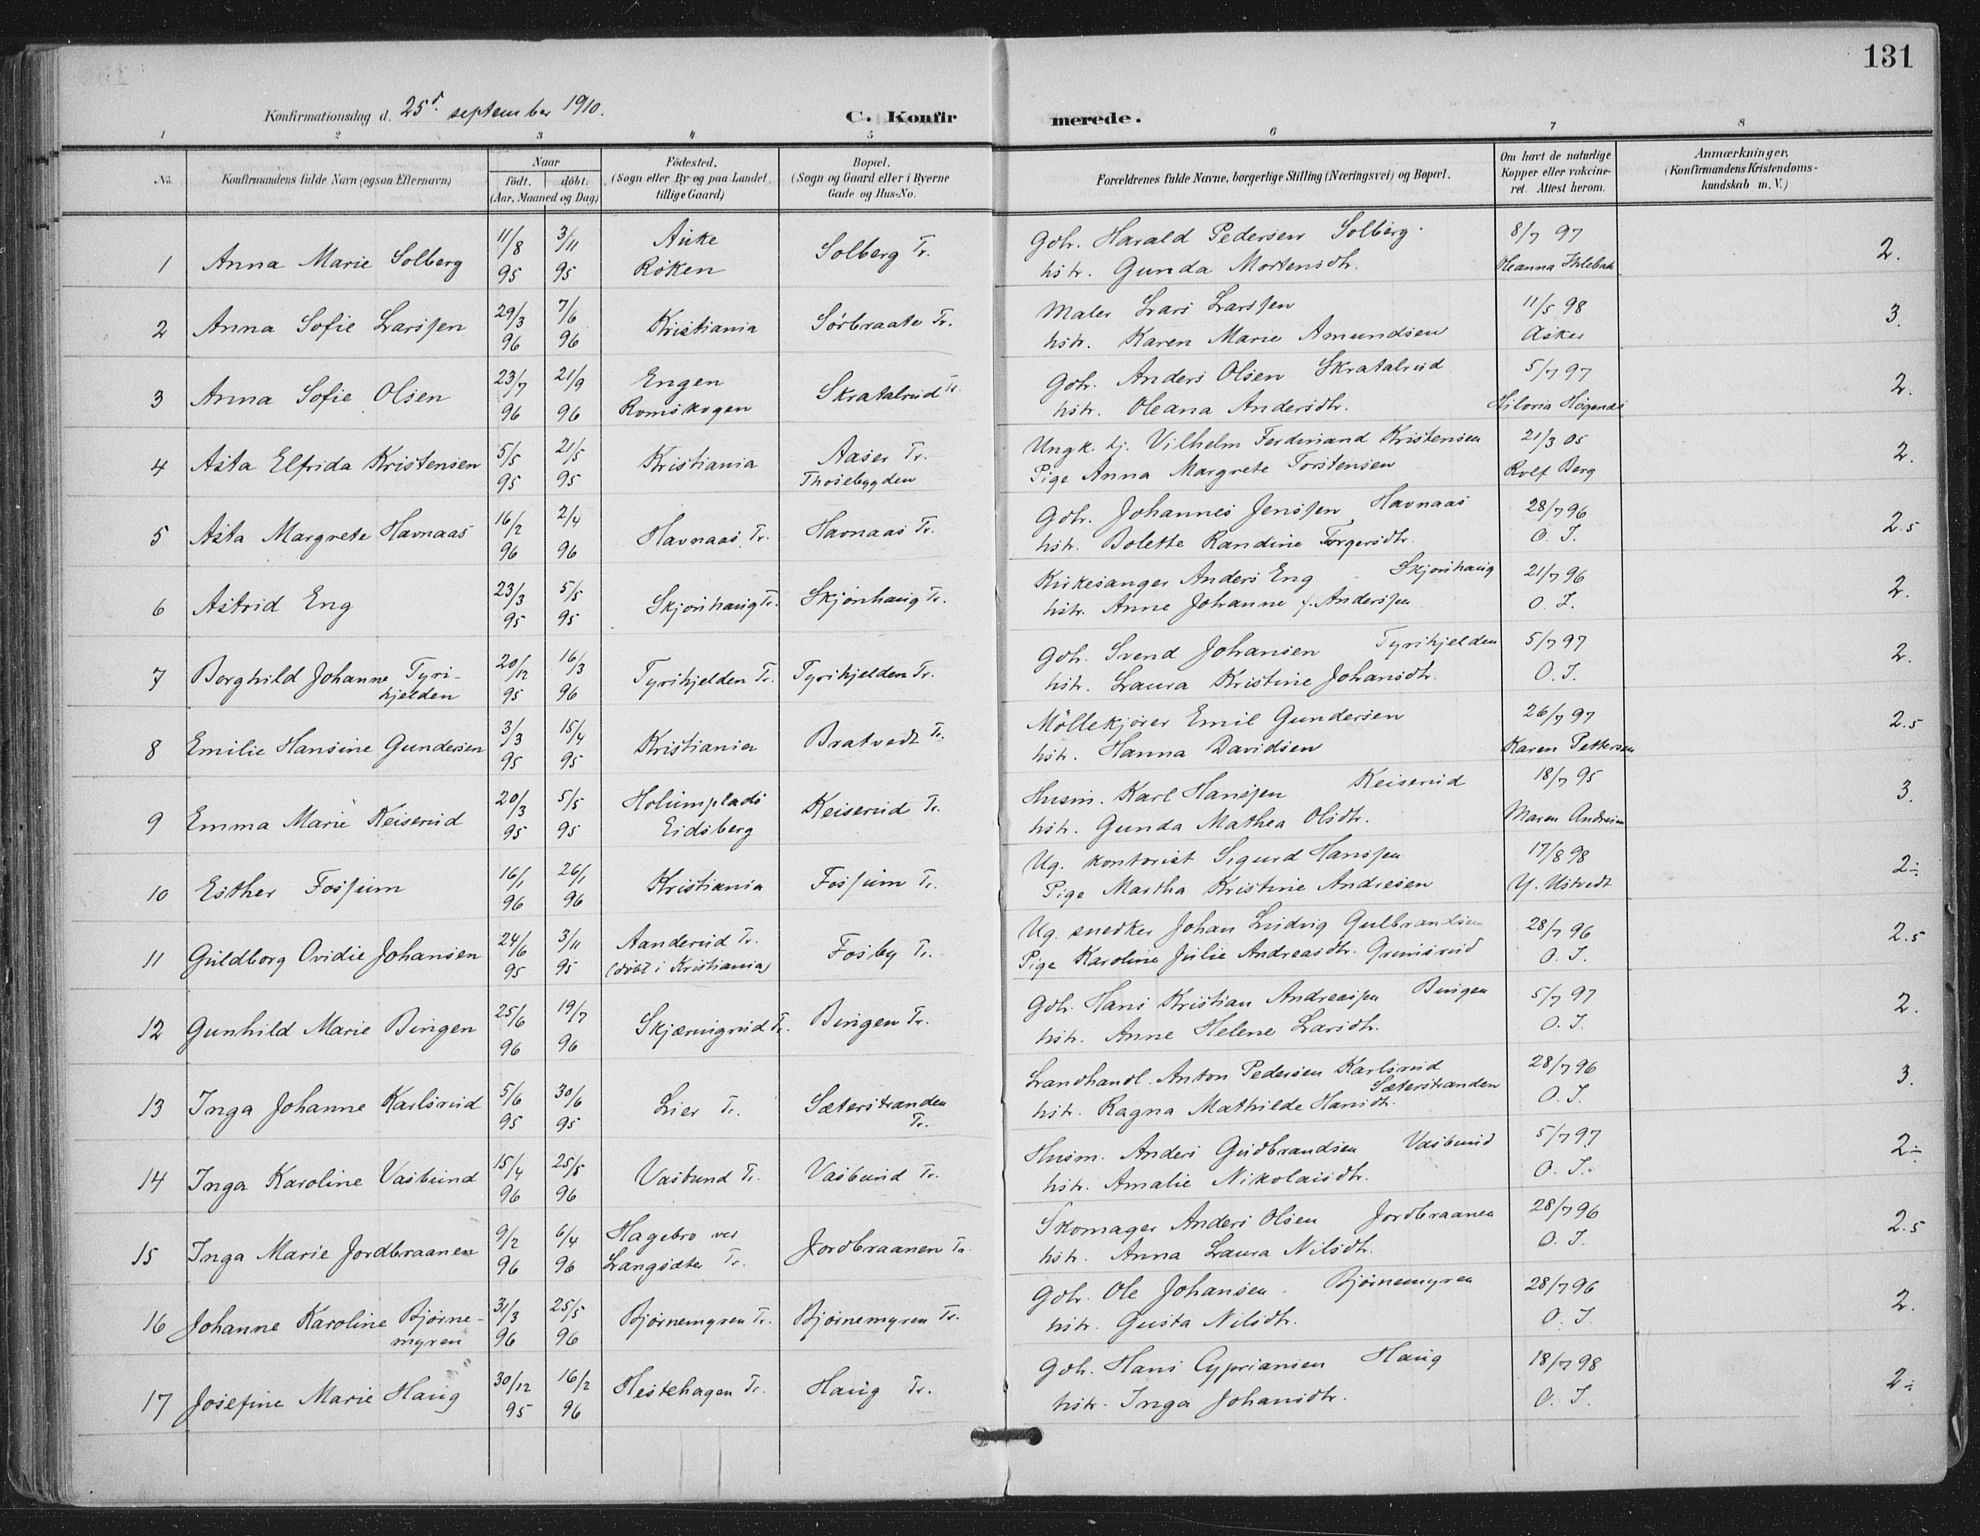 131
Konfirmationsdag d. 25d. september 1910. C. Konfirmerede.
1 2 3 4 5 6 7 8
No. Konfirmandens fulde Navn (ogsaa Efternavn) Naar født. døbt. (Aar, Maaned og Dag) Fødested. (Sogn eller By og paa Landet tillige Gaard) Bopæl. (Sogn og Gaard eller i Byerne Gade og Hus-No. Forældrenes fulde Navne, borgerlige Stilling (Næringsvei) og Bopæl. Om havt de naturlige Kopper eller vakcineret. Attest herom. Anmærkninger. (Konfirmandens Kristendomskundskab m. V.)
11/8 3/11 Auke Solberg Tr. Gdr. Harald Pedersen Solberg. 8/7 97
1 Anna Marie Solberg 95 95 Røken hstr. Gunda Mortensdtr. Oleanna 2.
29/3 7/6 Maler Lars Larssen 11/5 98
2 Anna Sofie Larssen 96 96 Kristiania Sørbraate Tr. hstr. Karen Marie Amundsen Asker 3.
23/7 21/9 Engen Gdr. Anders Olsen Skratalrud 5/7 97
3 Anna Sofie Olsen 96 96 Romskogen Skratalrud Tr. hstr. Oleana Andersdtr. 2.
5/5 21/5 Aaser Tr. Ungk. tj. Vilhelm Ferdinand Kristensen 21/3 05
4 Asta Elfrida Kristensen 95 95 Kristiania Thosebygden Pige Anna Margrete Torstensen Rolf Berg 2.
16/2 2/4 Gdr. Johannes Jenssen Havnaas 28/7 96
5 Asta Margrete Havnaas 96 96 Havnaas Tr. Havnaas Tr. hstr. Bolette Randine Torgersdtr. O. J. 2.5
23/3 5/5 Kirkesanger Anders Eng Skjønhaug 21/7 96
6 Astrid Eng 95 95 Skjønhaug Tr. Skjønhaug Tr. hstr. Anne Johanne f. Anderssen O. J. 2.
20/12 16/3 Gdr. Svend Johansen Tyrihjelden 5/7 97
7 Borghild Johanne Tyrihjelden 95 96 Tyrihjelden Tr. Tyrihjelden Tr. hstr. Laura Kristine Johansdtr. O. J. 2.
3/3 15/4 Møllekjører Emil Gundersen 26/7 97
8 Emilie Hansine Gundersen 95 95 Kristiania Bratvedt Tr. hstr. Hanna Davidsen Karen Pettersen 2.5
20/3 5/5 Holumplads Husm. Karl Hanssen Keiserud 18/7 95
9 Emma Marie Keiserud 95 95 Eidsberg Keiserud Tr. hstr. Gunda Mathea Olsdtr. Maren Andreasen 3.
16/1 26/1 Ug. kontorist Sigurd Hanssen 17/8 98
10 Esther Fossum 96 96 Kristiania Fossum Tr. Pige Martha Kristine Andresen Y. Ustvedt 2÷
24/6 3/11 Aanderud Tr. Ug. snedker Johan Ludvig Gulbrandsen 28/7 96
11 Guldborg Ovidie Johansen 95 95 (døbt i Kristiania) Fosby Tr. Pige Karoline Julie Andreasdtr. Grimsrud O. J. 2.5
25/6 19/7 Gdr. Hans Kristian Andreassen Bingen 5/7 97
12 Gunhild Marie Bingen 96 96 Skjæringrud Tr. Bingen Tr. hstr. Anne Helene Larsdtr. O. J. 2.
5/6 30/6 Landhandl. Anton Pedersen Karlsrud Sæterstranden 28/7 96
13 Inga Johanne Karlsrud 95 95 Lier Tr. Sæterstranden Tr. hstr. Ragna Mathilde Hansdtr. O. J. 3.
15/4 25/5 Husm. Anders Gudbrandsen Vasbund 5/7 97
14 Inga Karoline Vasbund 96 96 Vasbund Tr. Vasbund Tr. hstr. Amalie Nikolaisdtr. O. J. 2÷
9/2 6/4 Hagebro ved Skomager Anders Olsen Jordbraanen 28/7 96
15 Inga Marie Jordbraanen 96 96 Langsæter Tr. Jordbraanen Tr. hstr. Anna Laura Nilsdtr. O. J. 2.5
31/3 25/5 Gdr. Ole Johansen. Bjørnemyren 28/7 96
16 Johanne Karoline Bjørnemyren 96 96 Bjørnemyren Tr. Bjørnemyren Tr. hstr. Gusta Nilsdtr. O. J. 2.
30/12 16/2 Gdr. Hans Cypriansen Haug 18/7 98
17 Josefine Marie Haug 95 96 Hestehagen Tr. Haug Tr. hstr. Inga Johansdtr. O. J. 2÷